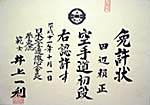 免許状
田辺頼正
空手道初段
右認許す
平成十一年十月一日
範士 井上一利